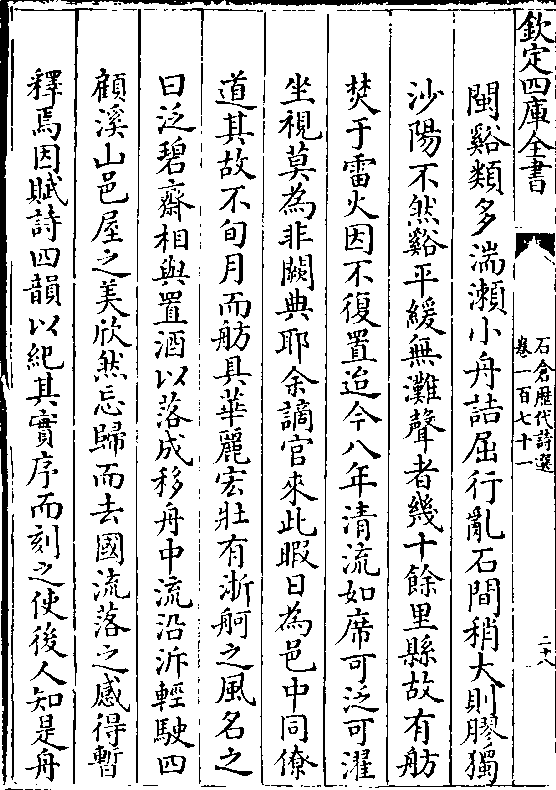 欽定四庫全書
石倉歷代詩選
卷一百七十一
二十八
閩谿類多湍瀬小舟詰屈行亂石間稍大則膠獨
沙陽不然谿平緩無灘聲者幾十餘里縣故有舫
焚于雷火因不復置迨今八年清流如席可泛可濯
坐視莫為非闕典耶余謫官來此暇日為邑中同僚
道其故不旬月而舫具華麗宏壯有浙舸之風名之
曰泛碧齋相與置酒以落成移舟中流沿泝輕駛四
顧溪山邑屋之美欣然忘歸而去國流落之感得暫
釋焉因賦詩四韻以紀其實序而刻之使後人知是舟